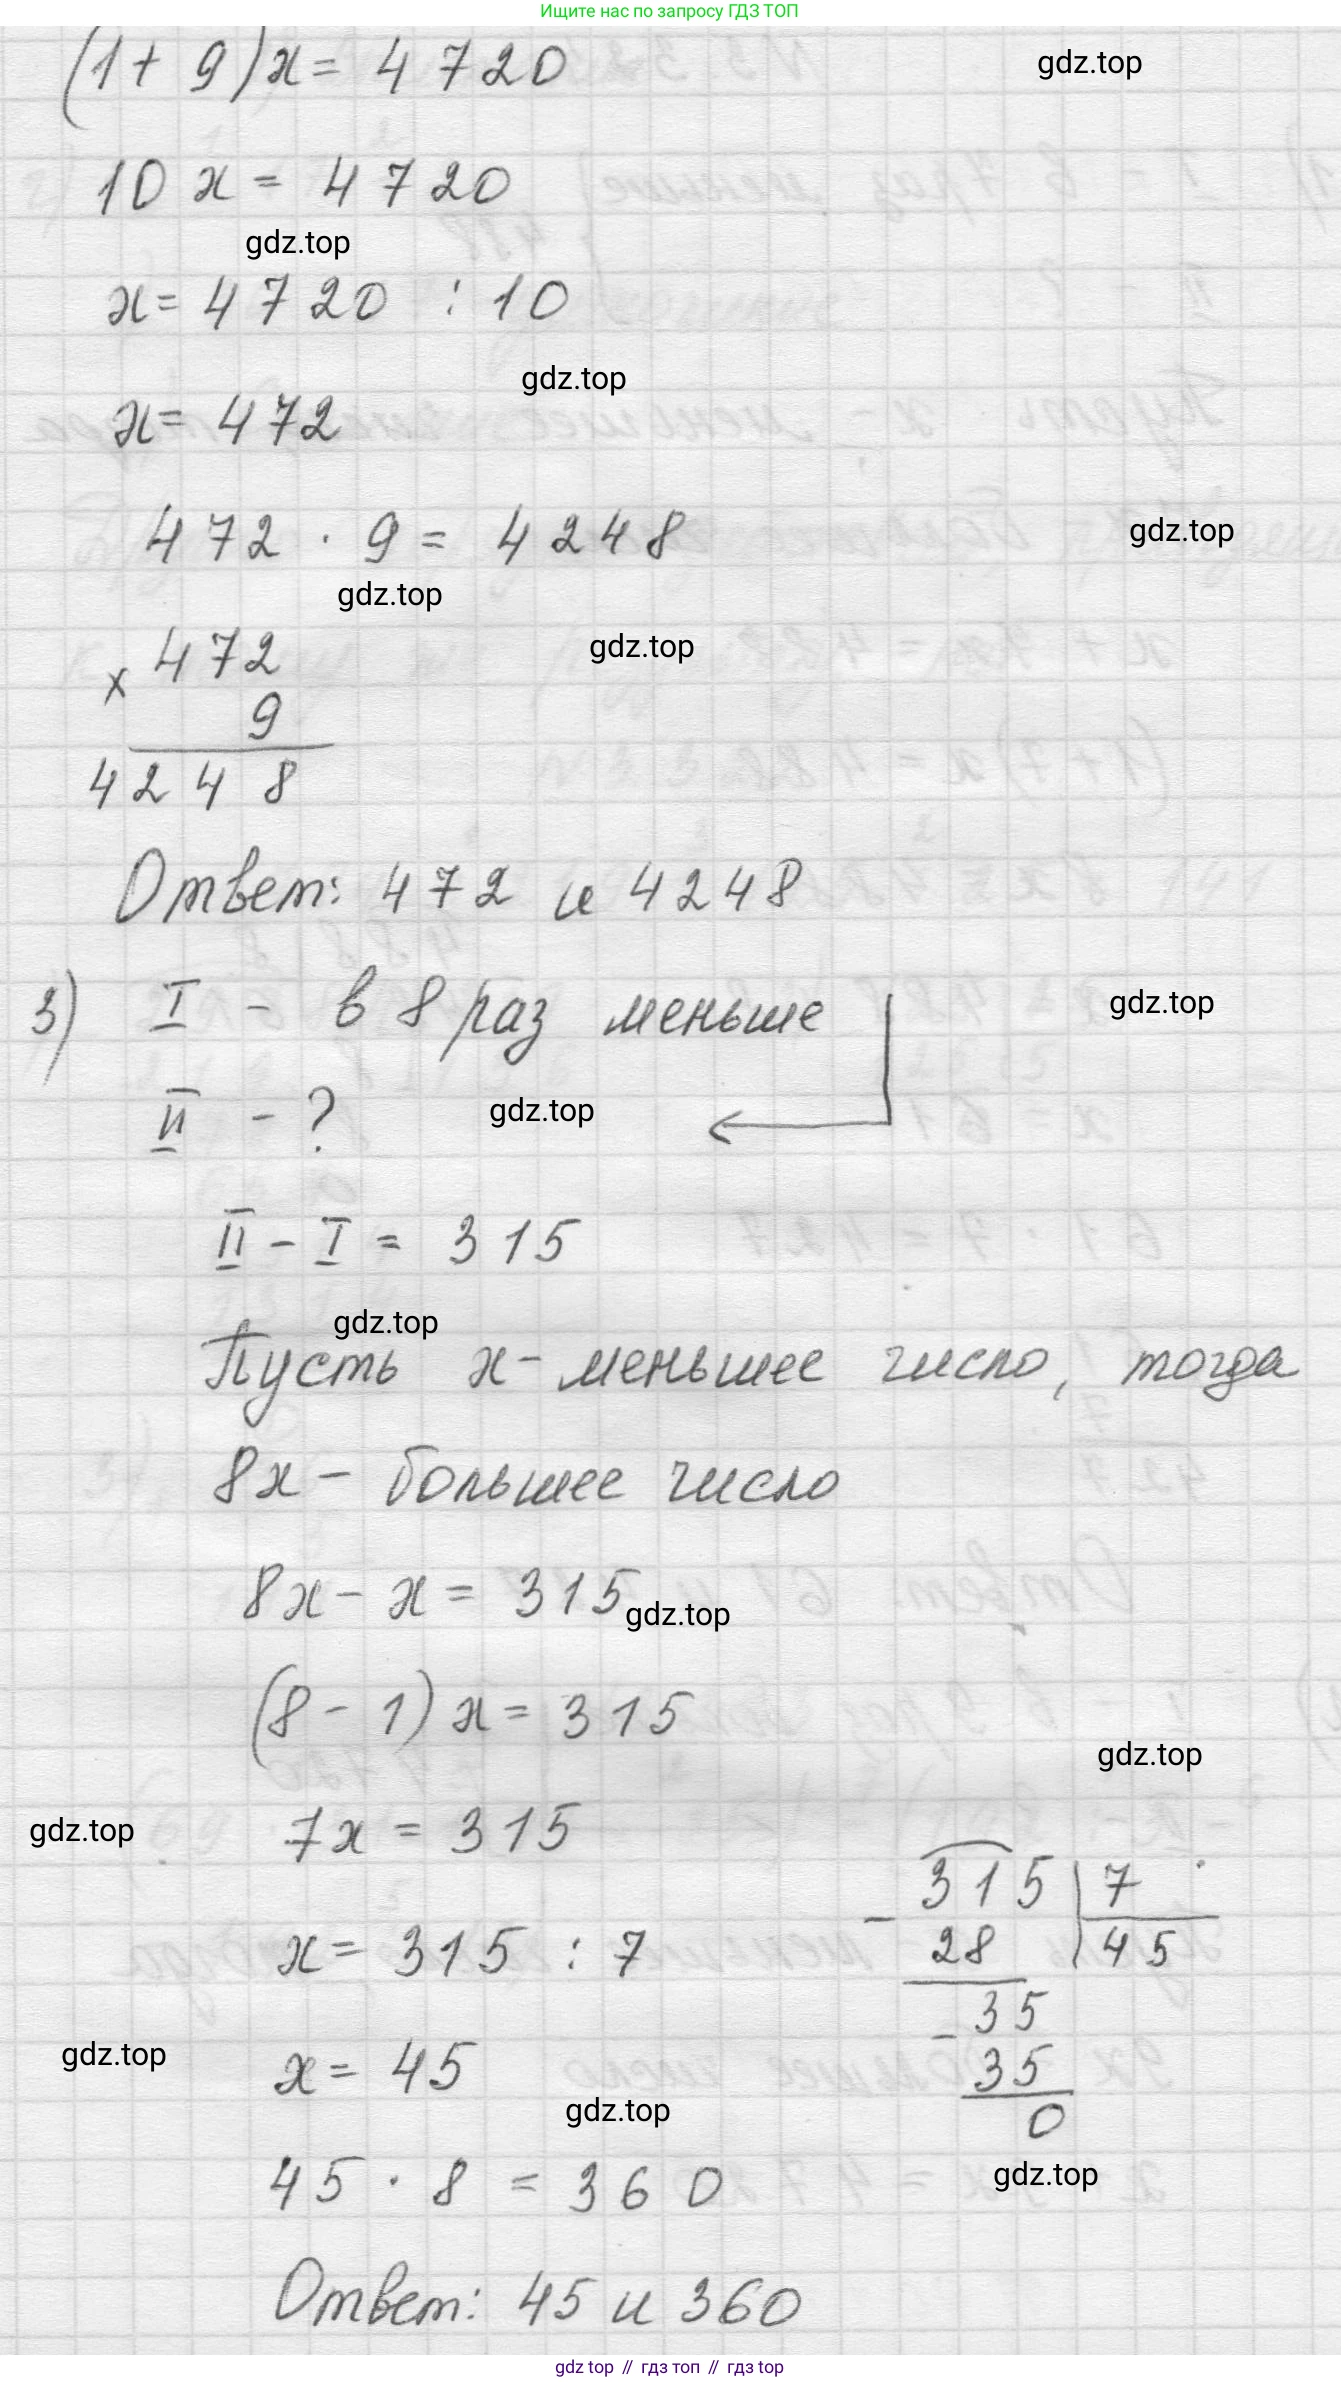 Ищите нас по запросу ГДЗ ТОП
(1 + 9)x = 4720
gdz.top
10x = 4720
gdz.top
x = 4720 : 10
gdz.top
x = 472
472 · 9 = 4248
gdz.top
gdz.top
gdz.top
× 472
9
4248
Ответ: 472 и 4248
3) I - в 8 раз меньше
gdz.top
II - ?
gdz.top
II - I = 315
gdz.top
Пусть x - меньшее число, тогда
8x - большее число
8x - x = 315
gdz.top
(8 - 1)x = 315
gdz.top
7x = 315
gdz.top
x = 315 : 7
- 315 | 7
28 | 45
- 35
35
0
x = 45
gdz.top
gdz.top
45 · 8 = 360
gdz.top
Ответ: 45 и 360
gdz top // гдз топ // гдз top